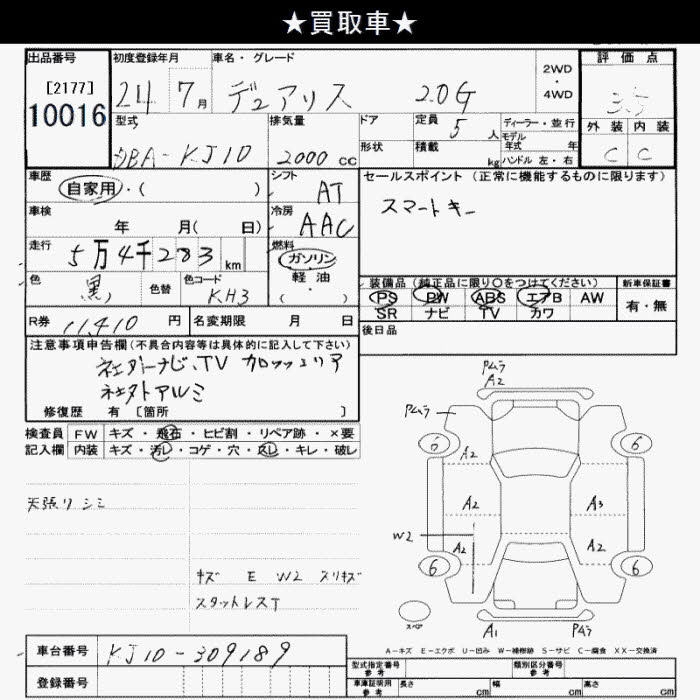 ★買取車★
出品番号 初度登録年月 車名・グレード 2WD・4WD 評価点
[2177]
10016 24 7月 デュアリス 2.0G 3.5
型式 排気量 ドア 定員 5人 ディーラー・並行 外装 内装
DBA-KJ10 2000cc 形状 積載 kg モデル年式 年式 ハンドル 左・右 C C
車歴 シフト セールスポイント(正常に機能するものに限ります)
自家用・( ) AT スマートキー
車検 年 月( 日) 冷房 AAC
走行 5万4千283km 燃料 ガソリン
色 黒 色替 色コード KH3 軽油・( )
装備品(純正品に限り○をつけてください) 新車保証書
PS PW ABS エアB AW 有・無
SR ナビ TV カワ
R券 11410円 名変期限 月 日 後日品
注意事項申告欄(不具合内容等は具体的に記入して下さい)
社外ナビ、TV カロッツェリア
社外アルミ
修復歴 有 [箇所 ]
検査員 FW キズ・飛石・ヒビ割・リペア跡・×要
記入欄 内装 キズ・汚レ・コゲ・穴・スレ・キレ・破レ
天張リシミ
キズ E W2 スリキズ
スタットレスT
PムラA2
Pムラ
6 A2 6
A2 A3
W2 A2 A2
6 6
スペア A1 Pムラ
A-キズ E-エクボ U-凹み W-補修跡 S-サビ C-腐食 XX-交換済
車台番号 KJ10-309189
登録番号
型式指定番号 参考 類別区分番号 参考
車庫証明用 参考 長さ cm 幅 cm 高さ cm